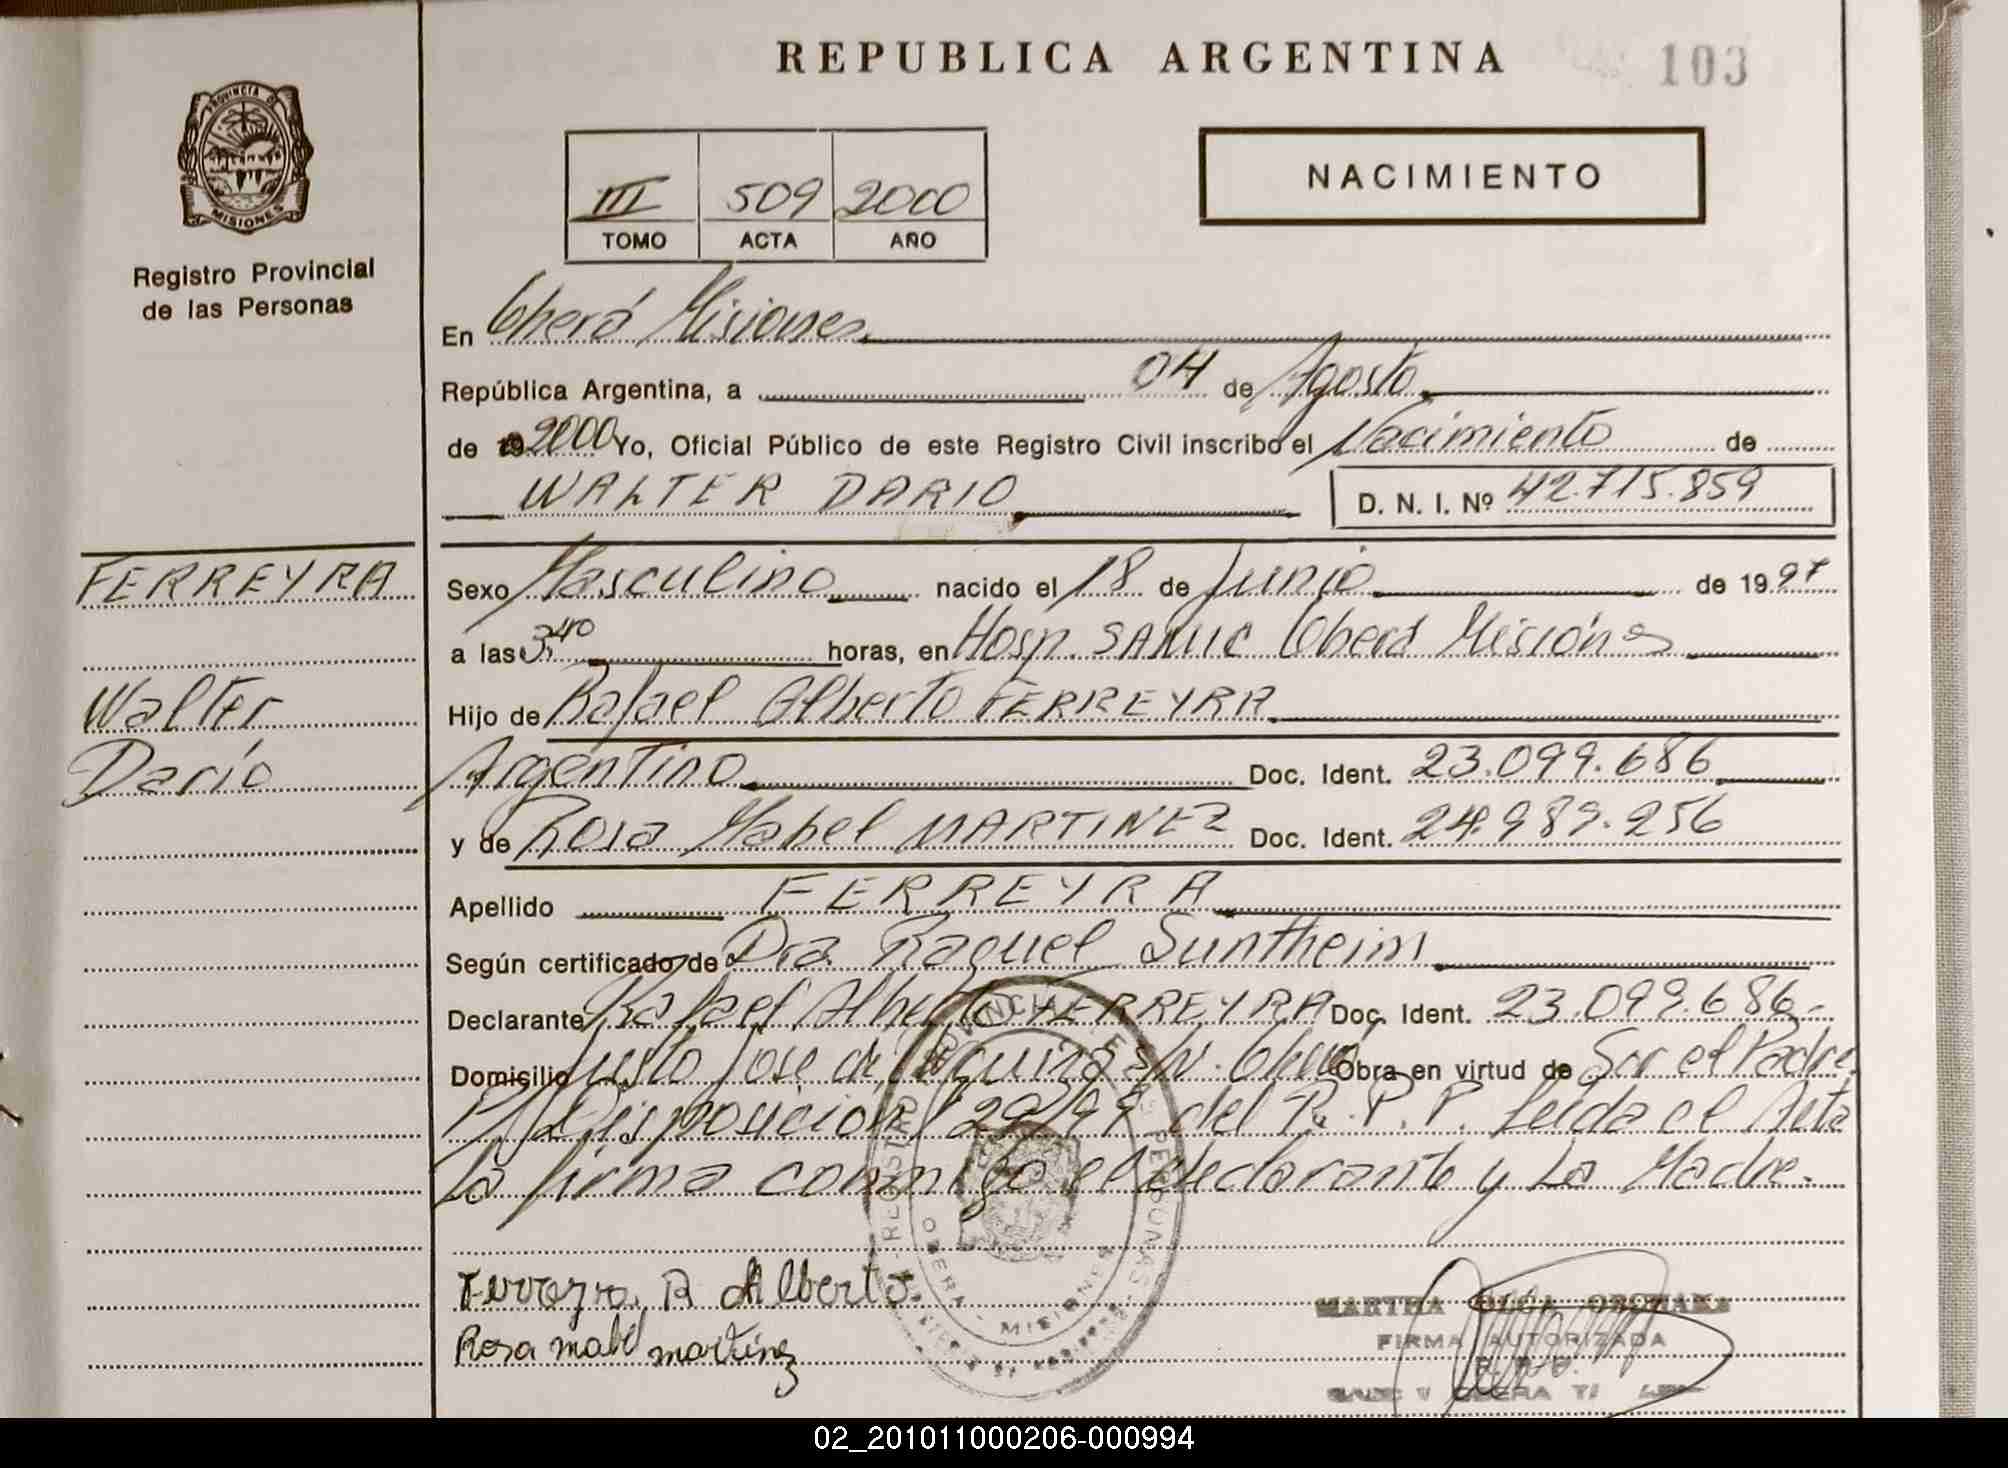 REPUBLICA ARGENTINA
103
PROVINCIA DE
MISIONES
Registro Provincial
de las Personas
III 509 2000
TOMO ACTA AÑO
NACIMIENTO
En Oberá Misiones
República Argentina, a 04 de Agosto
de 19 2000 Yo, Oficial Público de este Registro Civil inscribo el Nacimiento de
WALTER DARIO D. N. I. Nº 42.715.859
FERREYRA
Walter
Darío
Sexo Masculino nacido el 18 de Junio de 19 97
a las 3,40 horas, en Hosp. SAMIC Oberá Misiones
Hijo de Rafael Alberto FERREYRA
Argentino Doc. Ident. 23.099.686
y de Rosa Mabel MARTINEZ Doc. Ident. 24.989.256
Apellido FERREYRA
Según certificado de Dra. Raquel Suntheim
Declarante Rafael Alberto FERREYRA Doc. Ident. 23.099.686-
Domicilio Justo José de Urquiza S/N. Oberá Obra en virtud de Ser el Padre
P/ Disposición 129/99 del R.P.P. Leida el Acta
La firma conmigo el declarante y La Madre.
Ferreyra, R Alberto.
Rosa mabel martinez
MARTHA OLGA
FIRMA AUTORIZADA
OBERA - MISIONES
02_201011000206-000994